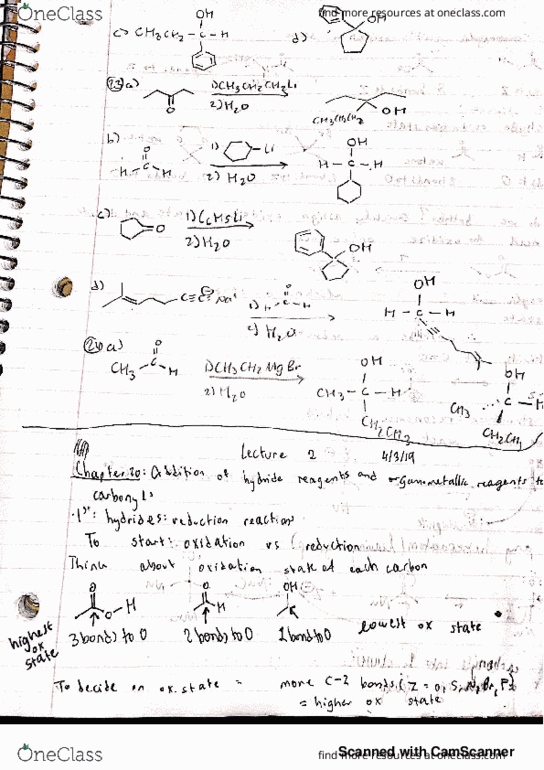 OneClass
find more resources at oneclass.com
OH
c) CH3CH2 - C - H
d)
OH
23 a)
1) CH3CH2CH2Li
2) H2O
O
OH
CH3CH2CH2
b)
O
H C H
1) Li
2) H2O
OH
H - C - H
c)
O
1) C6H5Li
2) H2O
OH
d)
C≡C Na+
1) H C H
O
2) H2O
OH
H - C - H
24 a)
O
CH3 C H
1) CH3CH2MgBr
2) H2O
OH
CH3 - C - H
CH2CH3
OH
CH3 C - H
CH2CH3
Lecture 2 4/3/19
Chapter 20: Addition of hydride reagents and organometallic reagents to
carbonyls
hydrides: reduction reactions
To start: oxidation vs reduction
Think about oxidation state of each carbon
O
O - H
O
H
OH
highest ox state
3 bonds to O 2 bonds to O 1 bond to O lowest ox state
To decide on ox. state = more C-Z bonds (Z = O, S, N, Br, F)
= higher ox state
Scanned with CamScanner
OneClass
find more resources at oneclass.com